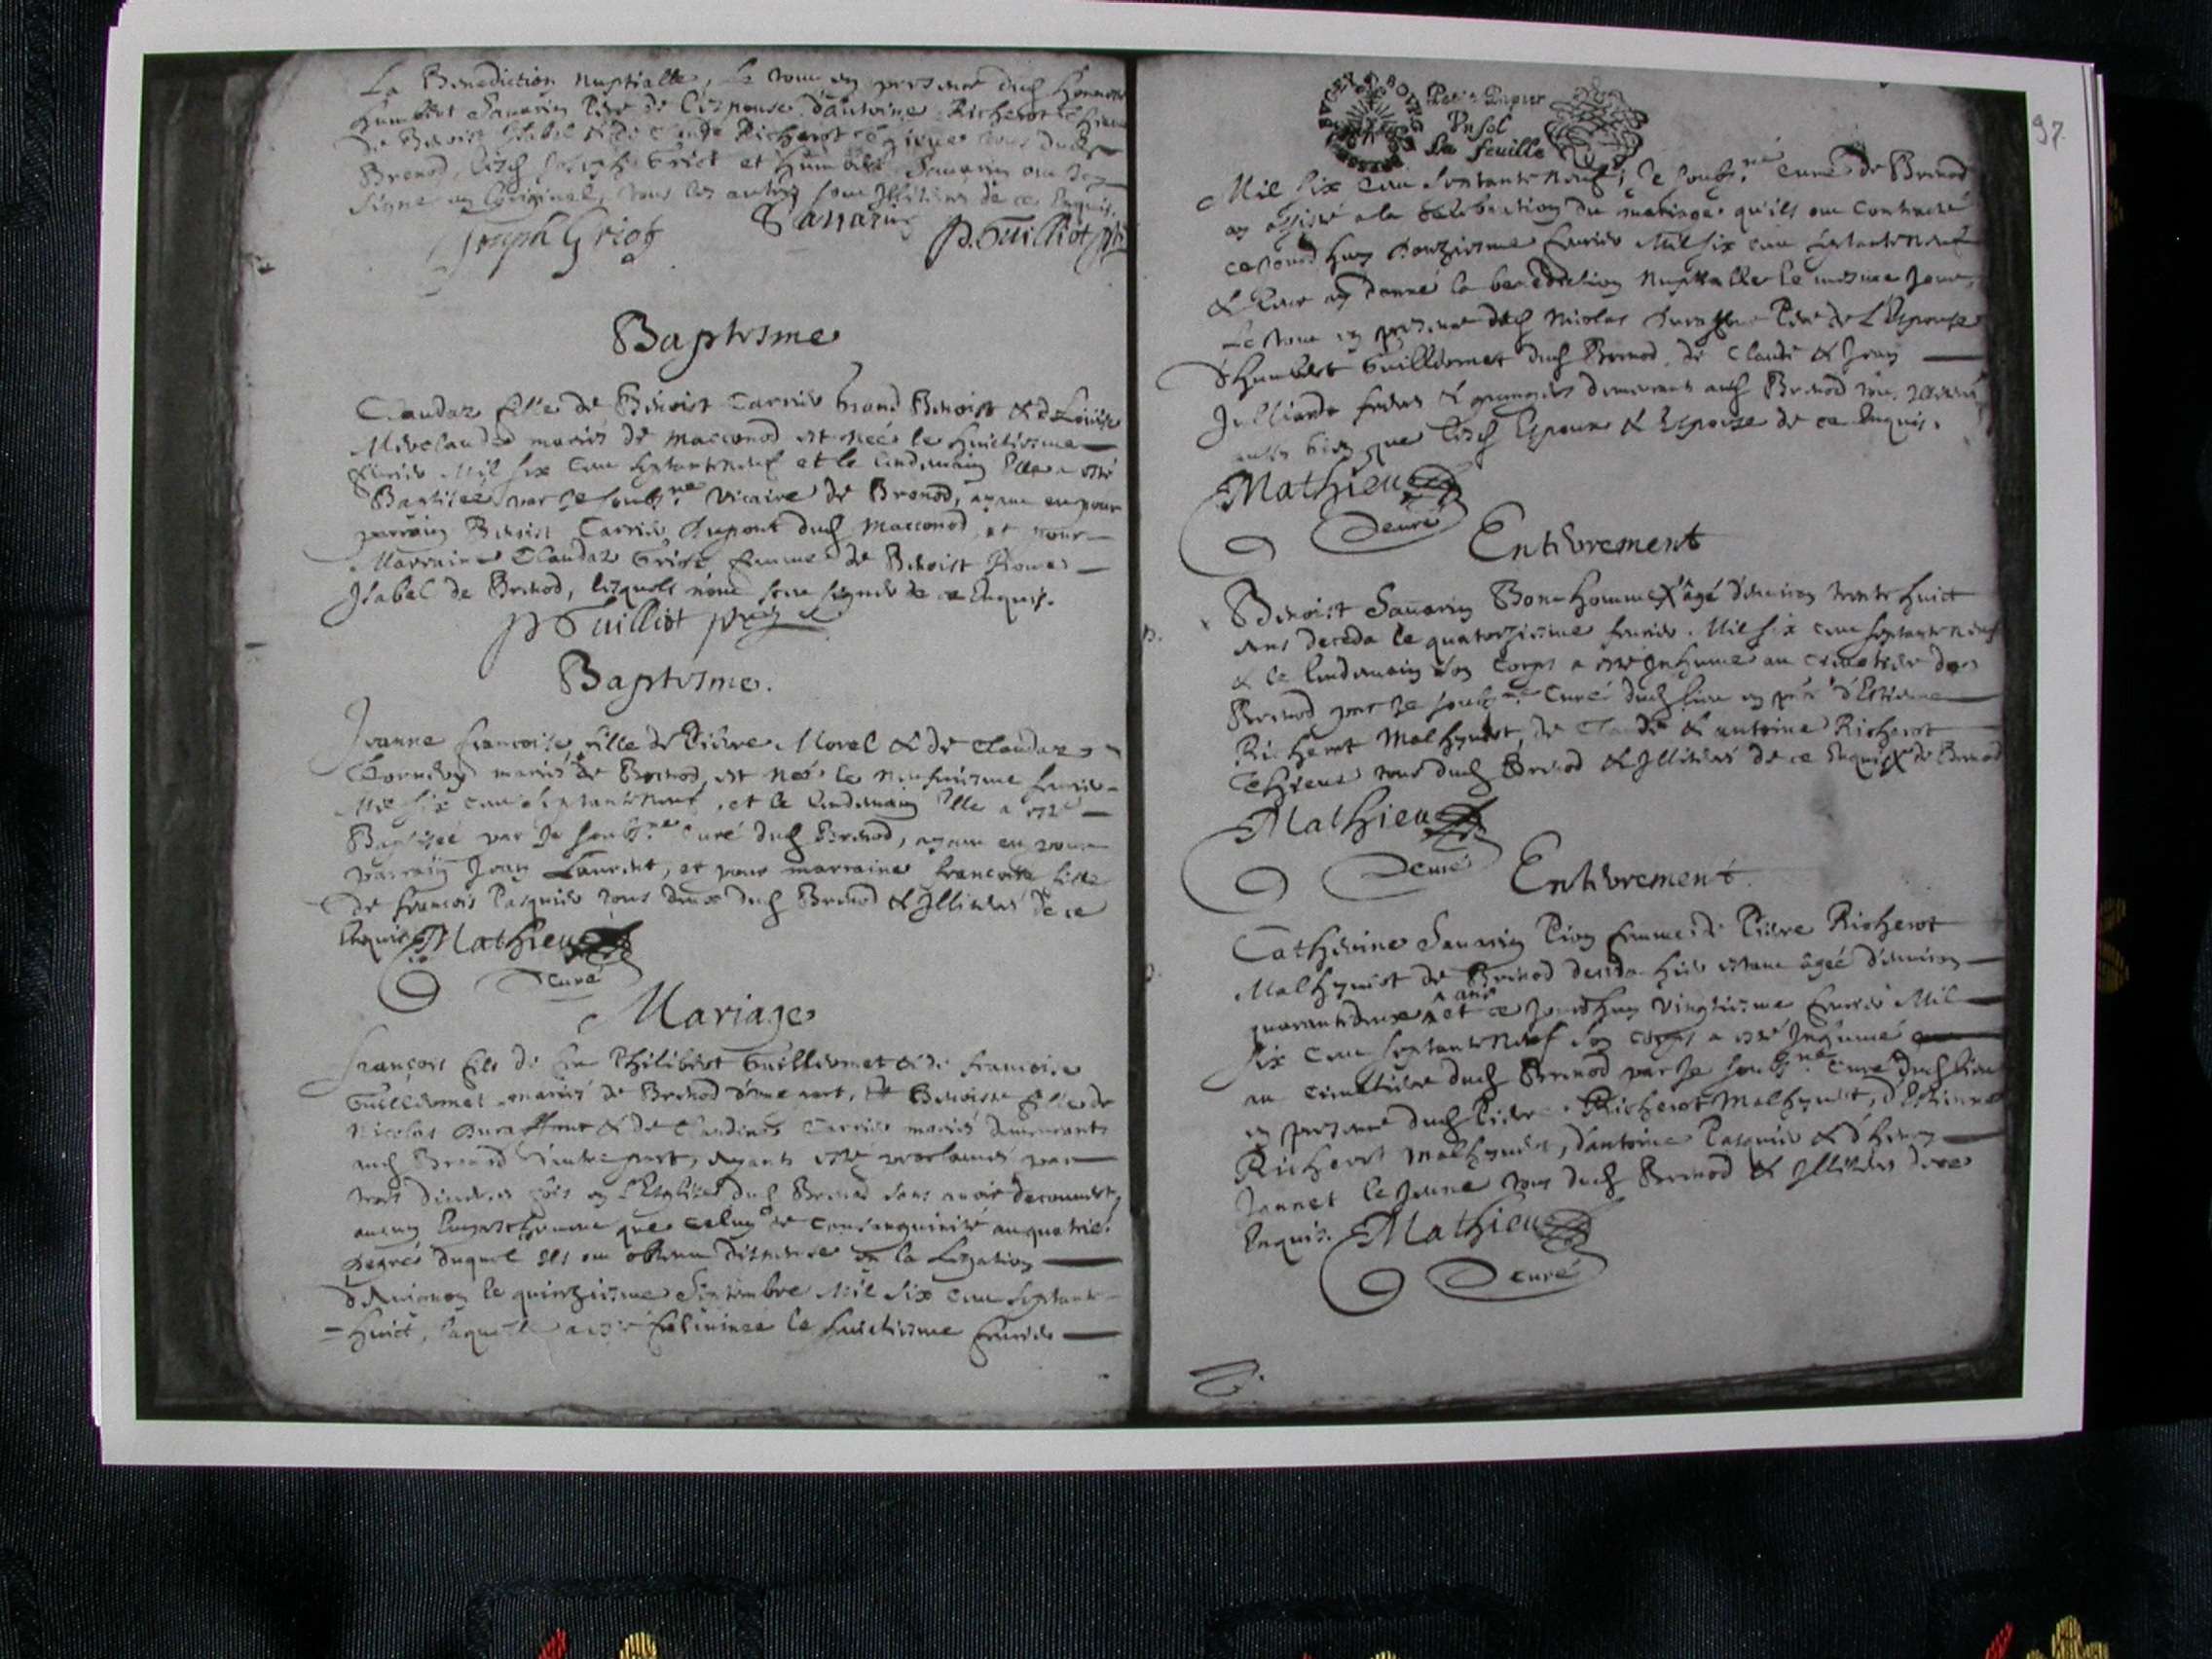 La Benediction Nuptialle, Le tout en presence dud. Honneste
Humbert Savarin Pere de l'espouse, d'Antoine Richerot
de Benoist Isabel & de Claude Richerot tous dud.
Brenod, lesd. Joseph Griot et Humbert Savarin ont
signé en l'original, tous les autres sont Illiterés de ce Enquis.
Joseph Griot Savarin P. Guilliot pbre
Baptesme
Claudaz fille de Benoist Carrier Grand Benoist & de Louise
mariés de Macconod est née le huictiesme
febvrier Mil six cent septante neuf et le lendemain Elle a esté
Baptisée par je soubz.né Vicaire de Brenod, ayant eu pour
parrain Benoist Carrier Dupont dud. Macconod, et pour
Marraine Claudaz Griot femme de Benoist
Isabel de Brenod, lesquels n'ont seu signer de ce Enquis.
P Guilliot pbre
Baptesme.
Jeanne francoise fille de Pierre Morel & de Claudaz
mariés de Brenod, est née le neufuiesme febvrier
Mil six cent septante neuf, et le lendemain Elle a esté
Baptisée par Je soubz.né Curé dud. Brenod, ayant eu pour
parrain Jean Laurent, et pour marraine francoise fille
de francois Pasquier tous deux dud. Brenod & Illiterés de ce
Enquis. Mathieu
curé
Mariage
François fils de feu Philibert Guillermet & de francoise
Guillermet mariés de Brenod d'une part, Et Benoiste fille de
Nicolas Duraffour & de Claudine Carrier mariés demeurants
aud. Brenod d'autre part, ayants esté proclamés par
trois diverses fois en l'Esglise dud. Brenod sans avoir decouvert
aucun Empeschement que celuy de consanguinité au quatrie.
degré duquel Ils ont obtenu dispense de la Legation
d'Avignon le quinziesme Septembre Mil six cent septante
huict, laquelle a esté fulminée le huictiesme febvrier
97
Petit Papier
Un sol
La feuille
Mil six cent septante neuf, Je soubz.né curé de Brenod
ay assisté a la celebration du mariage qu'ils ont contracté
ce jourd'huy douziesme febvrier Mil six cent septante neuf
& Leur ay donné la benediction Nuptialle le mesme jour,
Le tout en presence dud. Nicolas Duraffour Pere de L'Espouse
d'Humbert Guillermet dud. Brenod, de Claude & Jean
Julliard freres & grangers demeurants aud. Brenod tous Illiterés
aussy bien que lesd. Espoux & Espouse de ce Enquis.
Mathieu
curé
Enterrement
Benoist Savarin Bon-homme âgé d'environ trente huict
ans deceda le quatorziesme febvrier Mil six cent septante neuf
& le lendemain son corps a esté Inhumé au cimetiere de
Brenod par Je soubz.né Curé dud. lieu en pnce d'Estienne
Richerot Malhyvert, de Claude & Antoine Richerot
tous dud. Brenod & Illiterés de ce Enquis de Brenod
Mathieu
curé
Enterrement.
Catherine Savarin Pion femme de Pierre Richerot
Malhyvert de Brenod deceda hier estant âgée d'environ
quarante deux ans et ce jourd'huy vingtiesme febvrier Mil
six cent septante neuf son corps a esté Inhumé
au cimetiere dud. Brenod par Je soubz.né Curé dud. lieu
en presence dud. Pierre Richerot Malhyvert, d'Estienne
Richerot Malhyvert, d'Antoine Pasquier & d'
Jannet le Jeune tous dud. Brenod & Illiterés de ce
Enquis. Mathieu
curé